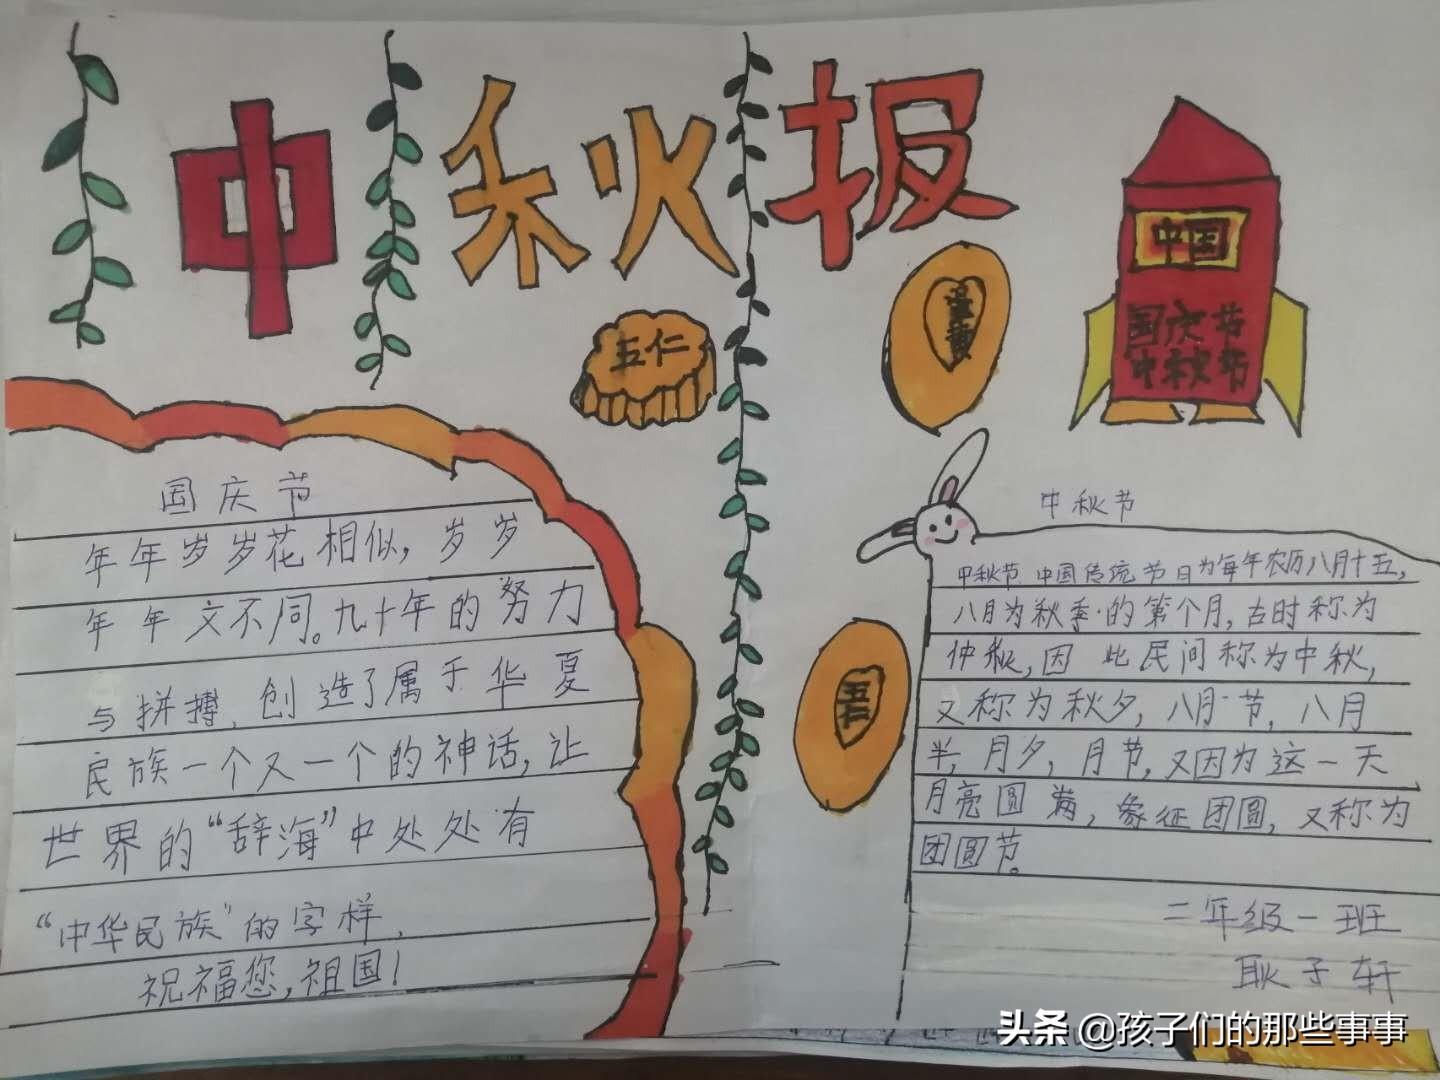 中秋报
五仁
蛋黄
中国
国庆节
中秋节
国庆节
年年岁岁花相似，岁岁
年年文不同。九十年的努力
与拼搏，创造了属于华夏
民族一个又一个的神话，让
世界的“辞海”中处处有
“中华民族”的字样，
祝福您，祖国！
五仁
中秋节
中秋节 中国传统节日为每年农历八月十五，
八月为秋季的第个月，古时称为
仲秋，因此民间称为中秋，
又称为秋夕，八月节，八月
半，月夕，月节，又因为这一天
月亮圆满，象征团圆，又称为
团圆节。
二年级一班
耿子轩
头条 @孩子们的那些事事